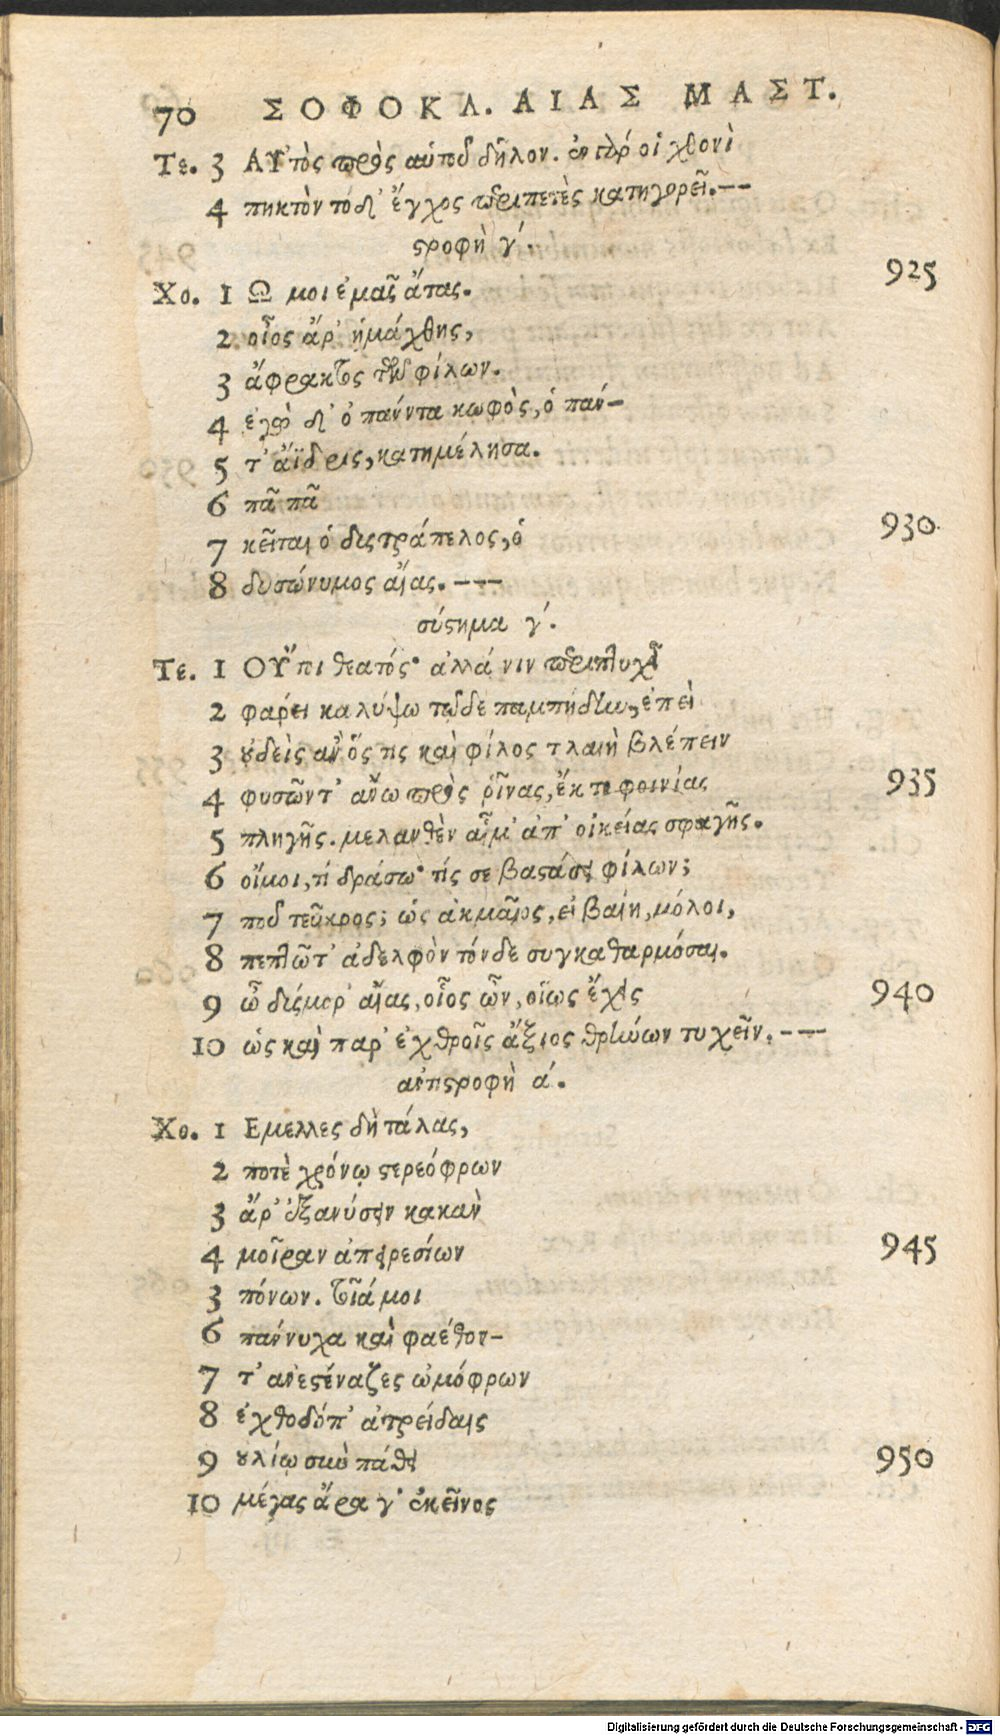 70 ΣΟΦΟΚΛ. ΑΙΑΣ ΜΑΣΤ.
Τε. 3 ΑΥ̓τὸς πρὸς αὑτοῦ δῆλον. ἐν γάρ οἱ χθονὶ
4 πηκτὸν τόδ' ἔγχος περιπετὲς κατηγορεῖ.---
ϛροφὴ γ'.
Χο. 1 Ω μοι ἐμᾶς ἄτας.
925
2 οἷος ἄρ' ᾑμάχθης,
3 ἄφρακτος τῶν φίλων.
4 ἐγὼ δ' ὁ πάντα κωφὸς, ὁ πάν-
5 τ' ἄϊδρις, κατημέλησα.
6 πᾶ πᾶ
7 κεῖται ὁ δυςτράπελος, ὁ
930
8 δυσώνυμος αἴας.---
σύϛημα γ'.
Τε. 1 ΟΥ̓́τι θεατός· ἀλλά νιν περιπτυχεῖ
2 φάρει καλύψω τῷδε παμπήδην, ἐπεὶ
3 οὐδεὶς ἂν ὅς τις καὶ φίλος τλαίη βλέπειν
4 φυσῶντ' ἄνω πρὸς ῥῖνας, ἔκ τε φοινίας
935
5 πληγῆς. μελανθὲν αἷμ' ἀπ' οἰκείας σφαγῆς.
6 οἴμοι, τί δράσω· τίς σε βαϛάσει φίλων;
7 ποῦ τεῦκρος; ὡς ἀκμαῖος, εἰ βαίη, μόλοι,
8 πεπτῶτ' ἀδελφὸν τόνδε συγκαθαρμόσαι.
9 ὦ δύςμορ' αἴας, οἷος ὢν, οἵως ἔχεις
940
10 ὡς καὶ παρ' ἐχθροῖς ἄξιος θρήνων τυχεῖν.---
ἀντιϛροφὴ ά.
Χο. 1 Εμελλες δὴ τάλας,
2 ποτὲ χρόνῳ ϛερεόφρων
3 ἄρ' ἐξανύσειν κακὰν
4 μοῖραν ἀπειρεσίων
945
3 πόνων. τοῖά μοι
6 πάννυχα καὶ φαέθον-
7 τ' ἀνεϛέναζες ὠμόφρων
8 ἐχθοδόπ' ἀτρείδαις
9 οὐλίῳ σὺν πάθει
950
10 μέγας ἄρα γ' ἐκεῖνος
Digitalisierung gefördert durch die Deutsche Forschungsgemeinschaft - DFG